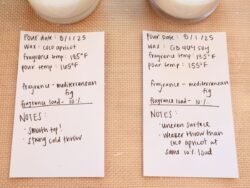 Pour date: 8/1/25
Wax: coco apricot
fragrance temp: 185°F
pour temp: 165°F
fragrance - mediterranean
fig
fragrance load - 10%
NOTES:
- smooth top!
- strong cold throw
Pour Date: 8/1/25
Wax: GB 444 soy
fragrance temp: 185°F
pour temp: 155°F
fragrance - mediterranean
fig
fragrance load - 10%
NOTES:
- uneven surface
- weaker throw than
coco apricot at
same 10% load